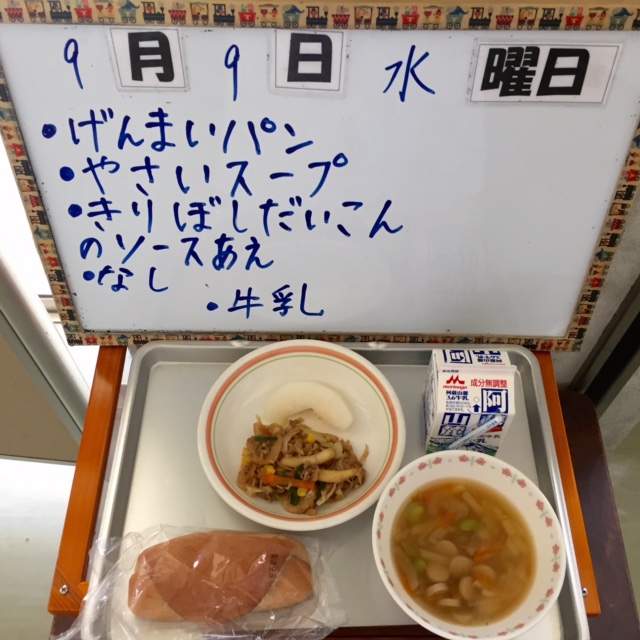 9月9日 水曜日
・げんまいパン
・やさいスープ
・きりぼしだいこん
のソースあえ
・なし
・牛乳
成分無調整
阿
3.6牛乳